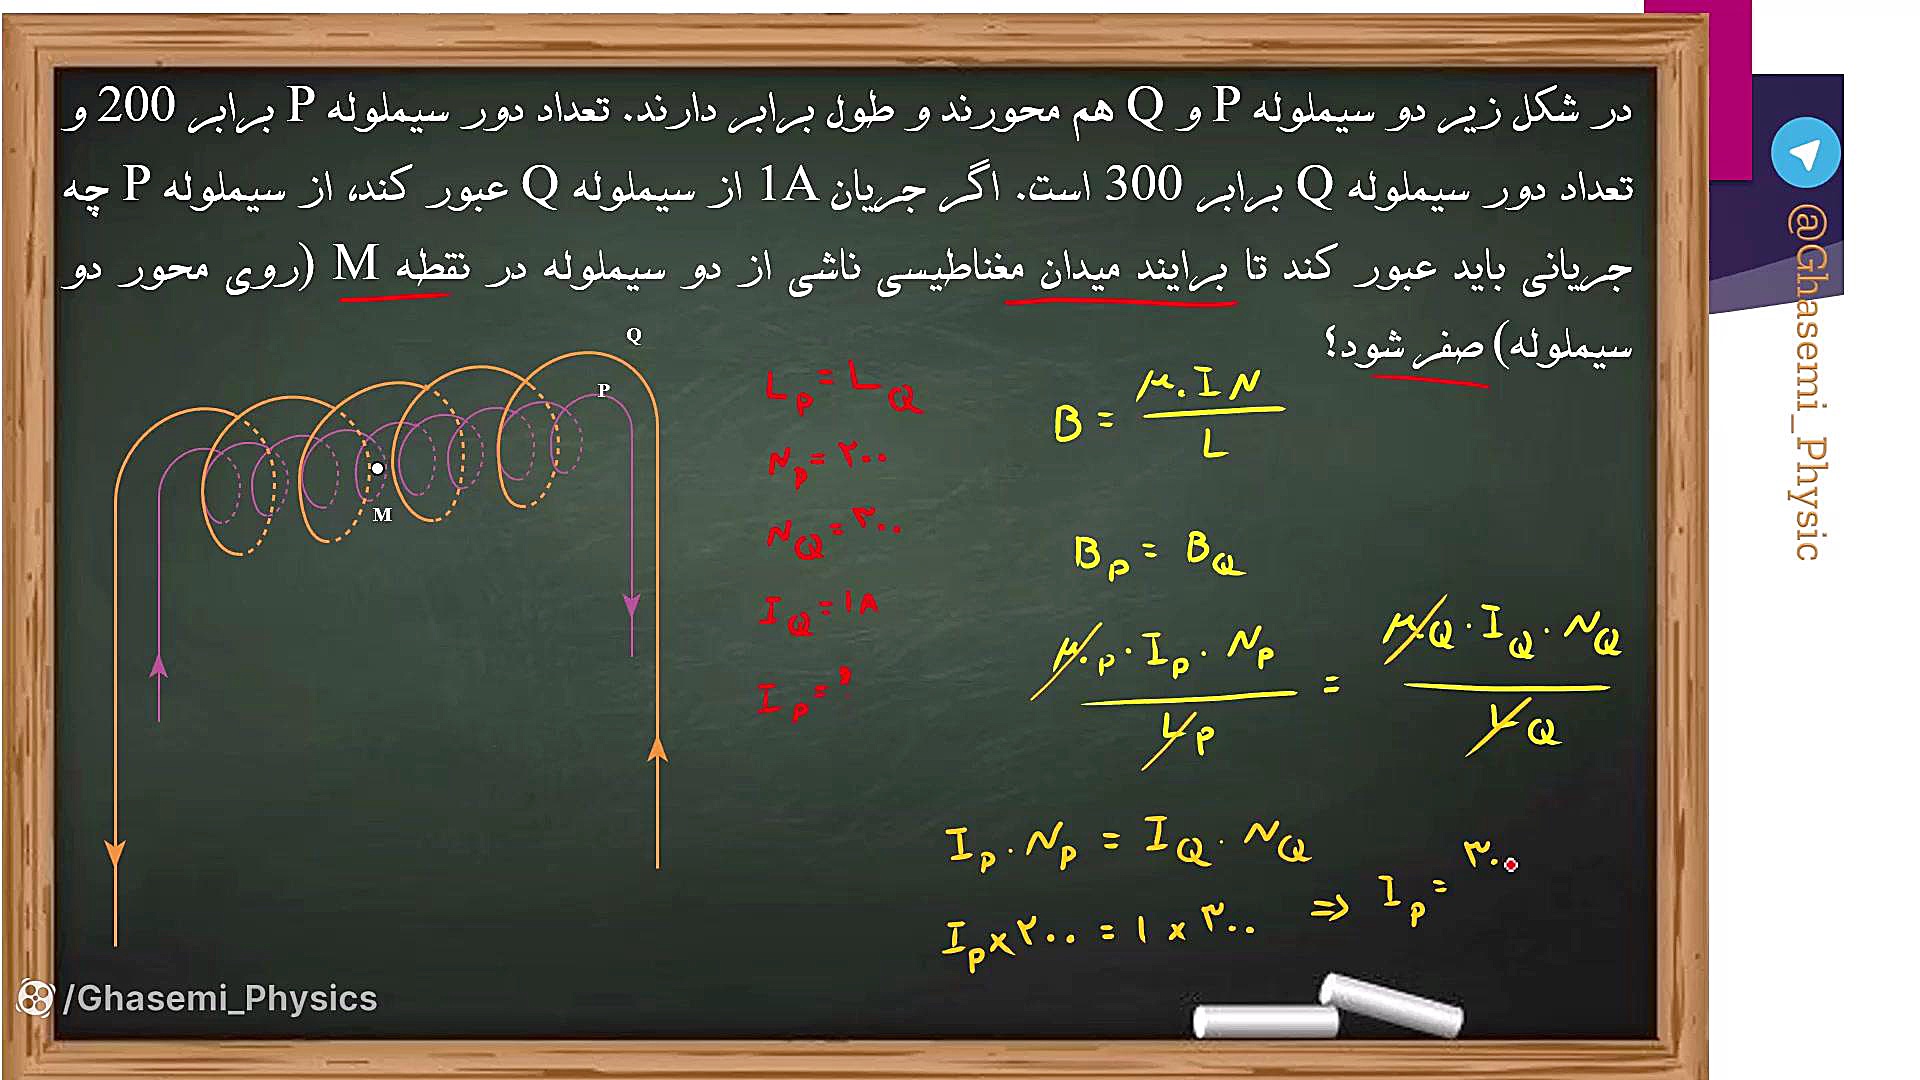 در شکل زیر دو سیملوله P و Q هم محورند و طول برابر دارند. تعداد دور سیملوله P برابر 200 و
تعداد دور سیملوله Q برابر 300 است. اگر جریان 1A از سیملوله Q عبور کند، از سیملوله P چه
جریانی باید عبور کند تا برایند میدان مغناطیسی ناشی از دو سیملوله در نقطه M (روی محور دو
سیملوله) صفر شود؟
Q
P
M
L_P = L_Q
N_P = ۲۰۰
N_Q = ۳۰۰
I_Q = 1A
I_P = ?
B = μ.IN / L
B_P = B_Q
μ._P · I_P · N_P / L_P = μ._Q · I_Q · N_Q / L_Q
I_P · N_P = I_Q · N_Q
I_P × ۲۰۰ = ۱ × ۳۰۰ ⇒ I_P = ۳۰
/Ghasemi_Physics
@Ghasemi_Physic